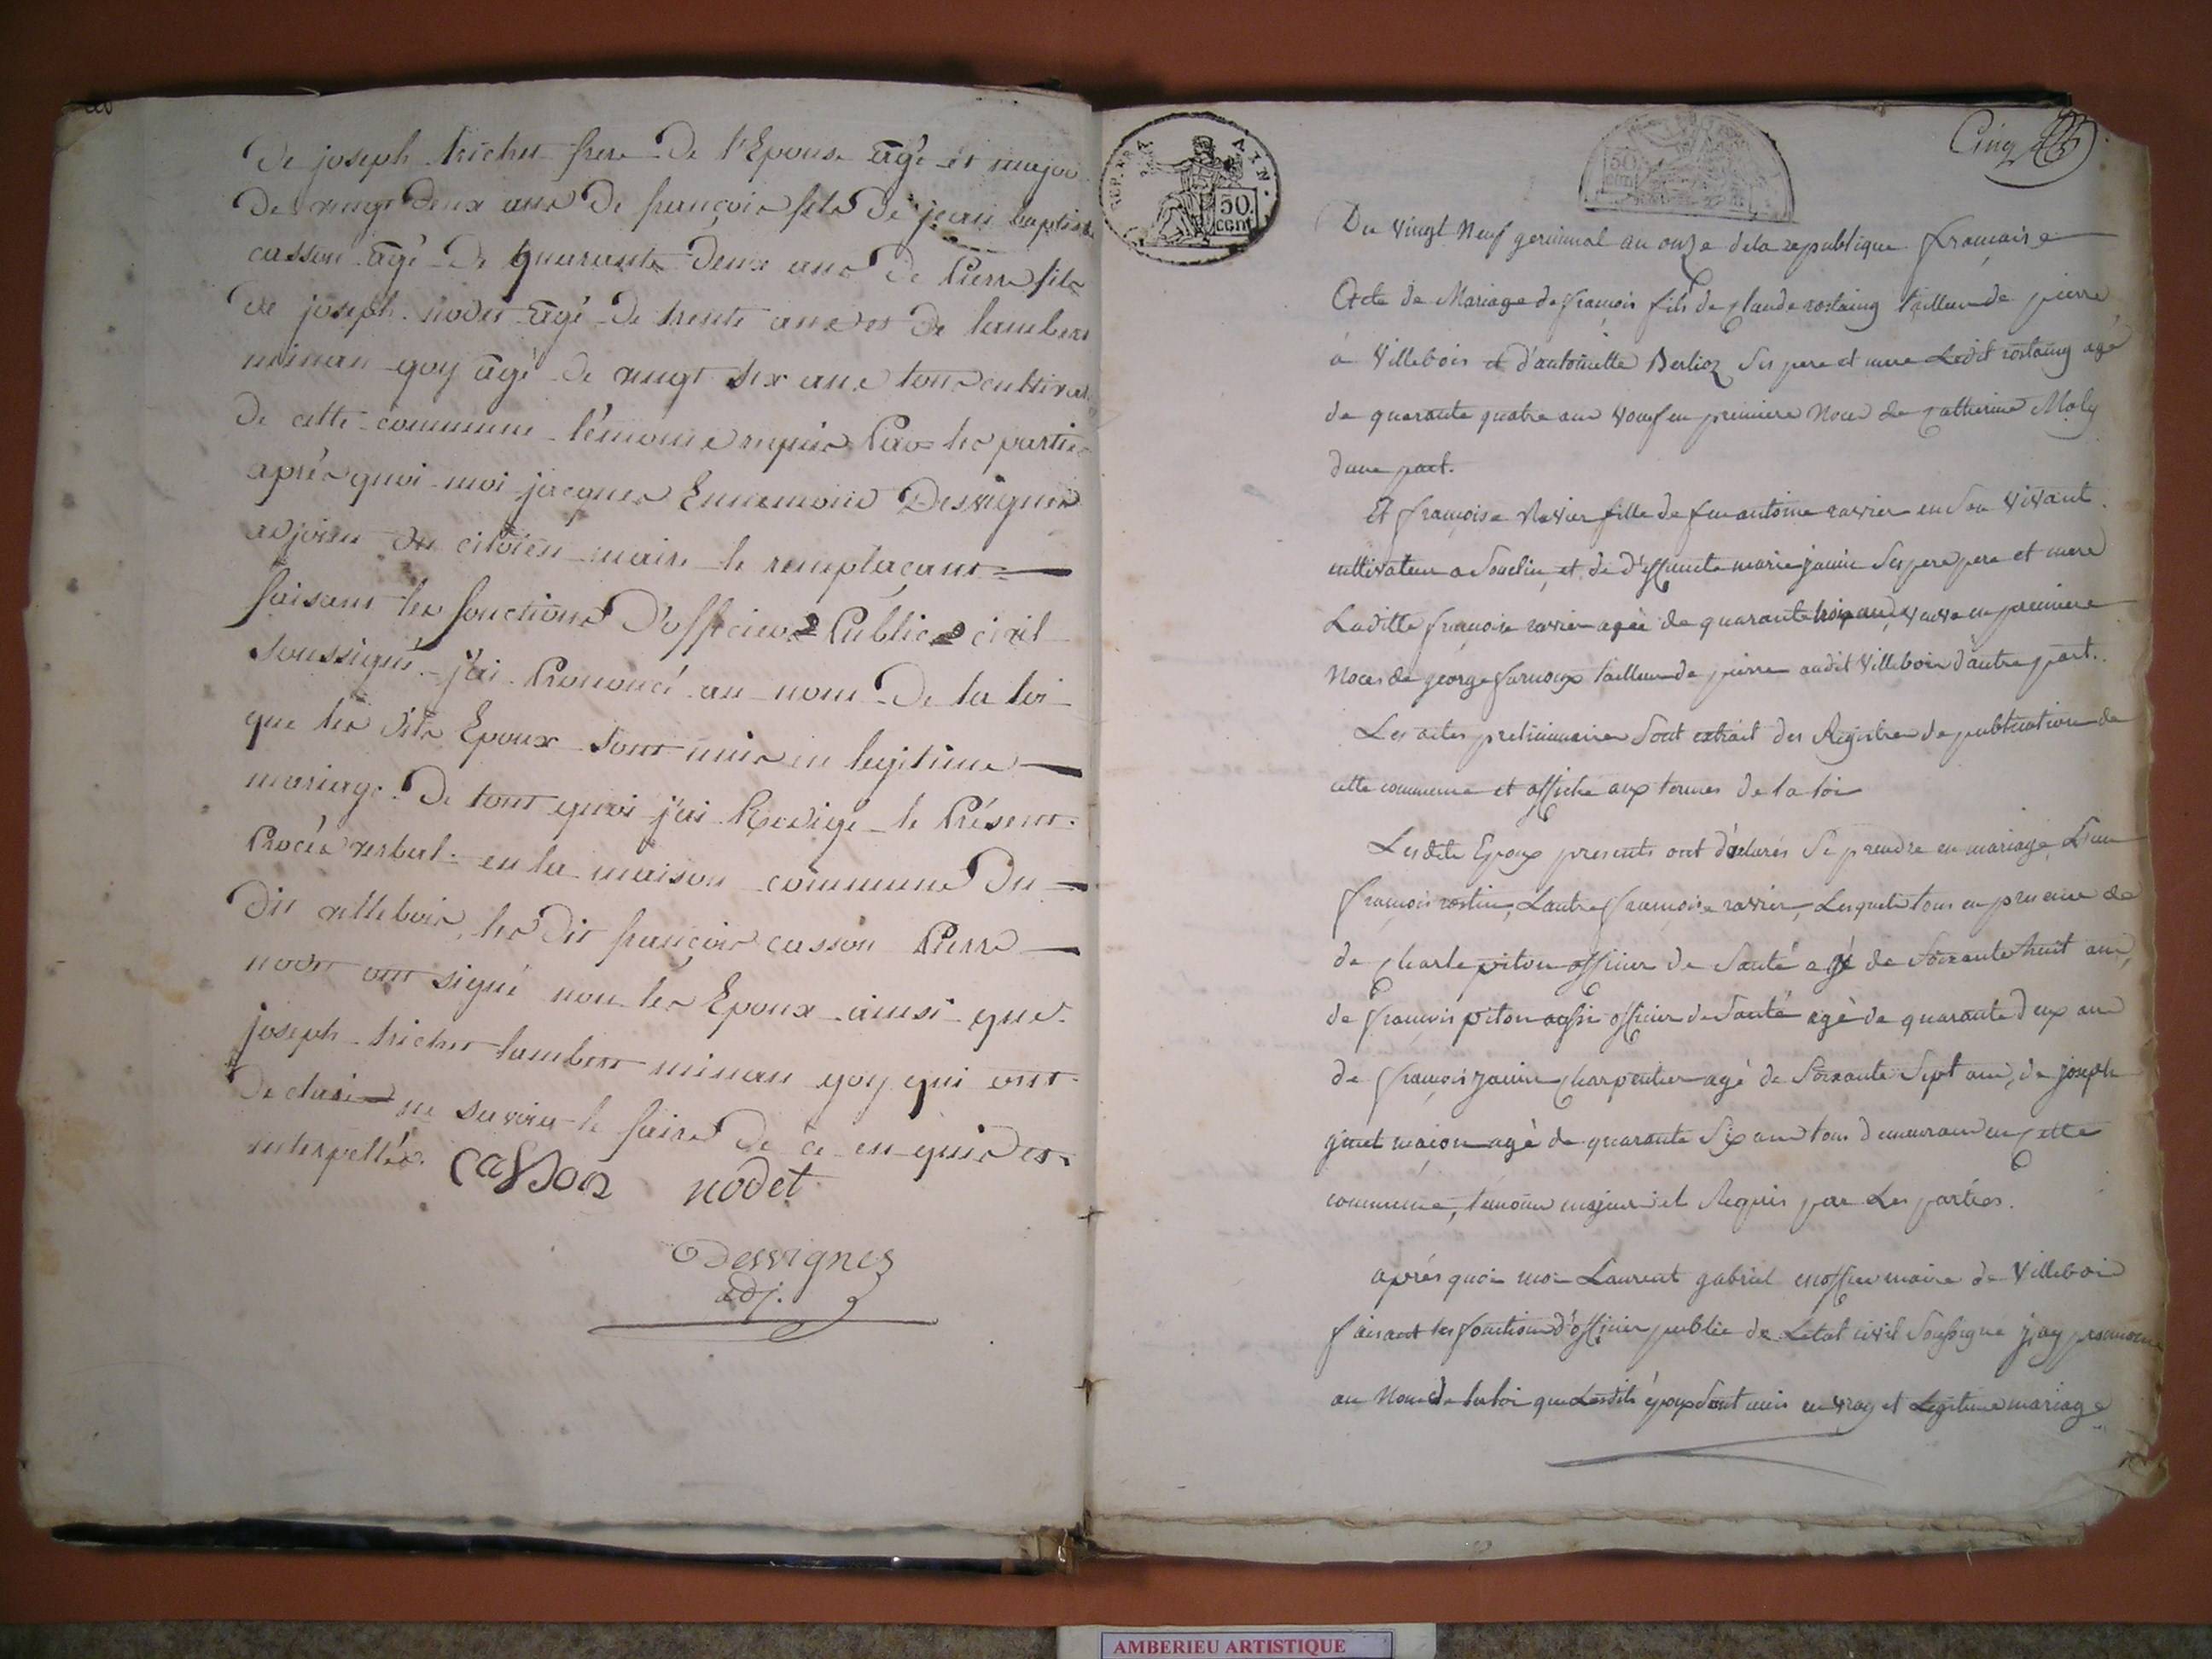 De joseph trichet frere De l'Epouse agé et major
De vingt Deux ans De françois fils De jean baptiste
casson agé De quarante Deux ans De Pierre fils
De joseph nodet agé De trente ans et De lambert
minan goy agé De vingt six ans tous cultivat
De cette commune temoins requis Par les partie
aprés quoi moi jacques Ennemond Desvignes
adjoint Du citoien maire le remplaçant
faisant les fonctions D'officier Public civil
soussigné j'ai Prononcé au nom De la loi
que les dits Epoux sont unis en legitime
mariage De tout quoi j'ai Redigé le Présent
Procés verbal en la maison commune Du
Dit villebois, les Dit françois casson Pierre
nodet ont signé non les Epoux ainsi que
joseph trichet lambert minan goy qui ont
De claré ne savoir le faire De ce en quis et
interpellés. casson nodet
Desvignes
adj.
REP. FRA
50
cent
50
cent
Cinq
Du vingt Neuf germinal an onze de la republique française
Acte de Mariage de françois fils de Claude rostaing tailleur de pierre
à Villebois et d'antoinette Berlioz ses pere et mere Ledit rostaing agé
de quarante quatre ans vouf en premiere Noce de Catherine Moly
dune part.
Et françoise Ravier fille de feu antoine ravier en son vivant
cultivateur a Souclin et de d'effuncte marie janin ses pere pere et mere
Laditte françoise ravier agée de quarante trois ans, veuve en premiere
Noces de george farnoux tailleur de pierre audit Villebois d'autre part.
Les actes preliminaires sont extrait des Registres de publication de
cette commune et affiche aux termes de la loi
Lesdits Epoux presents ont déclarés se prendre en mariage, L'un
françois rostin, L'autre françoise ravier, Lesquels tous en presence de
de Charle piton officier de Santé agé de Soixante huit ans,
de françois piton aussi officier de Santé agé de quarante deux ans
de françois janin Charpentier agé de Soixante Sept ans, de joseph
ginet maçon agé de quarante Six ans tous demeurans en Cette
commune, temoins majeurs et Requis par Les parties.
aprés quoi moi Laurent gabriel maire de Villebois
faisant les fonctions d'officier public de Letat civil Soussigné j'ay prononcé
au Nom de la loi que Lesdits époux Sont unis en vray et Legitime mariage
AMBERIEU ARTISTIQUE